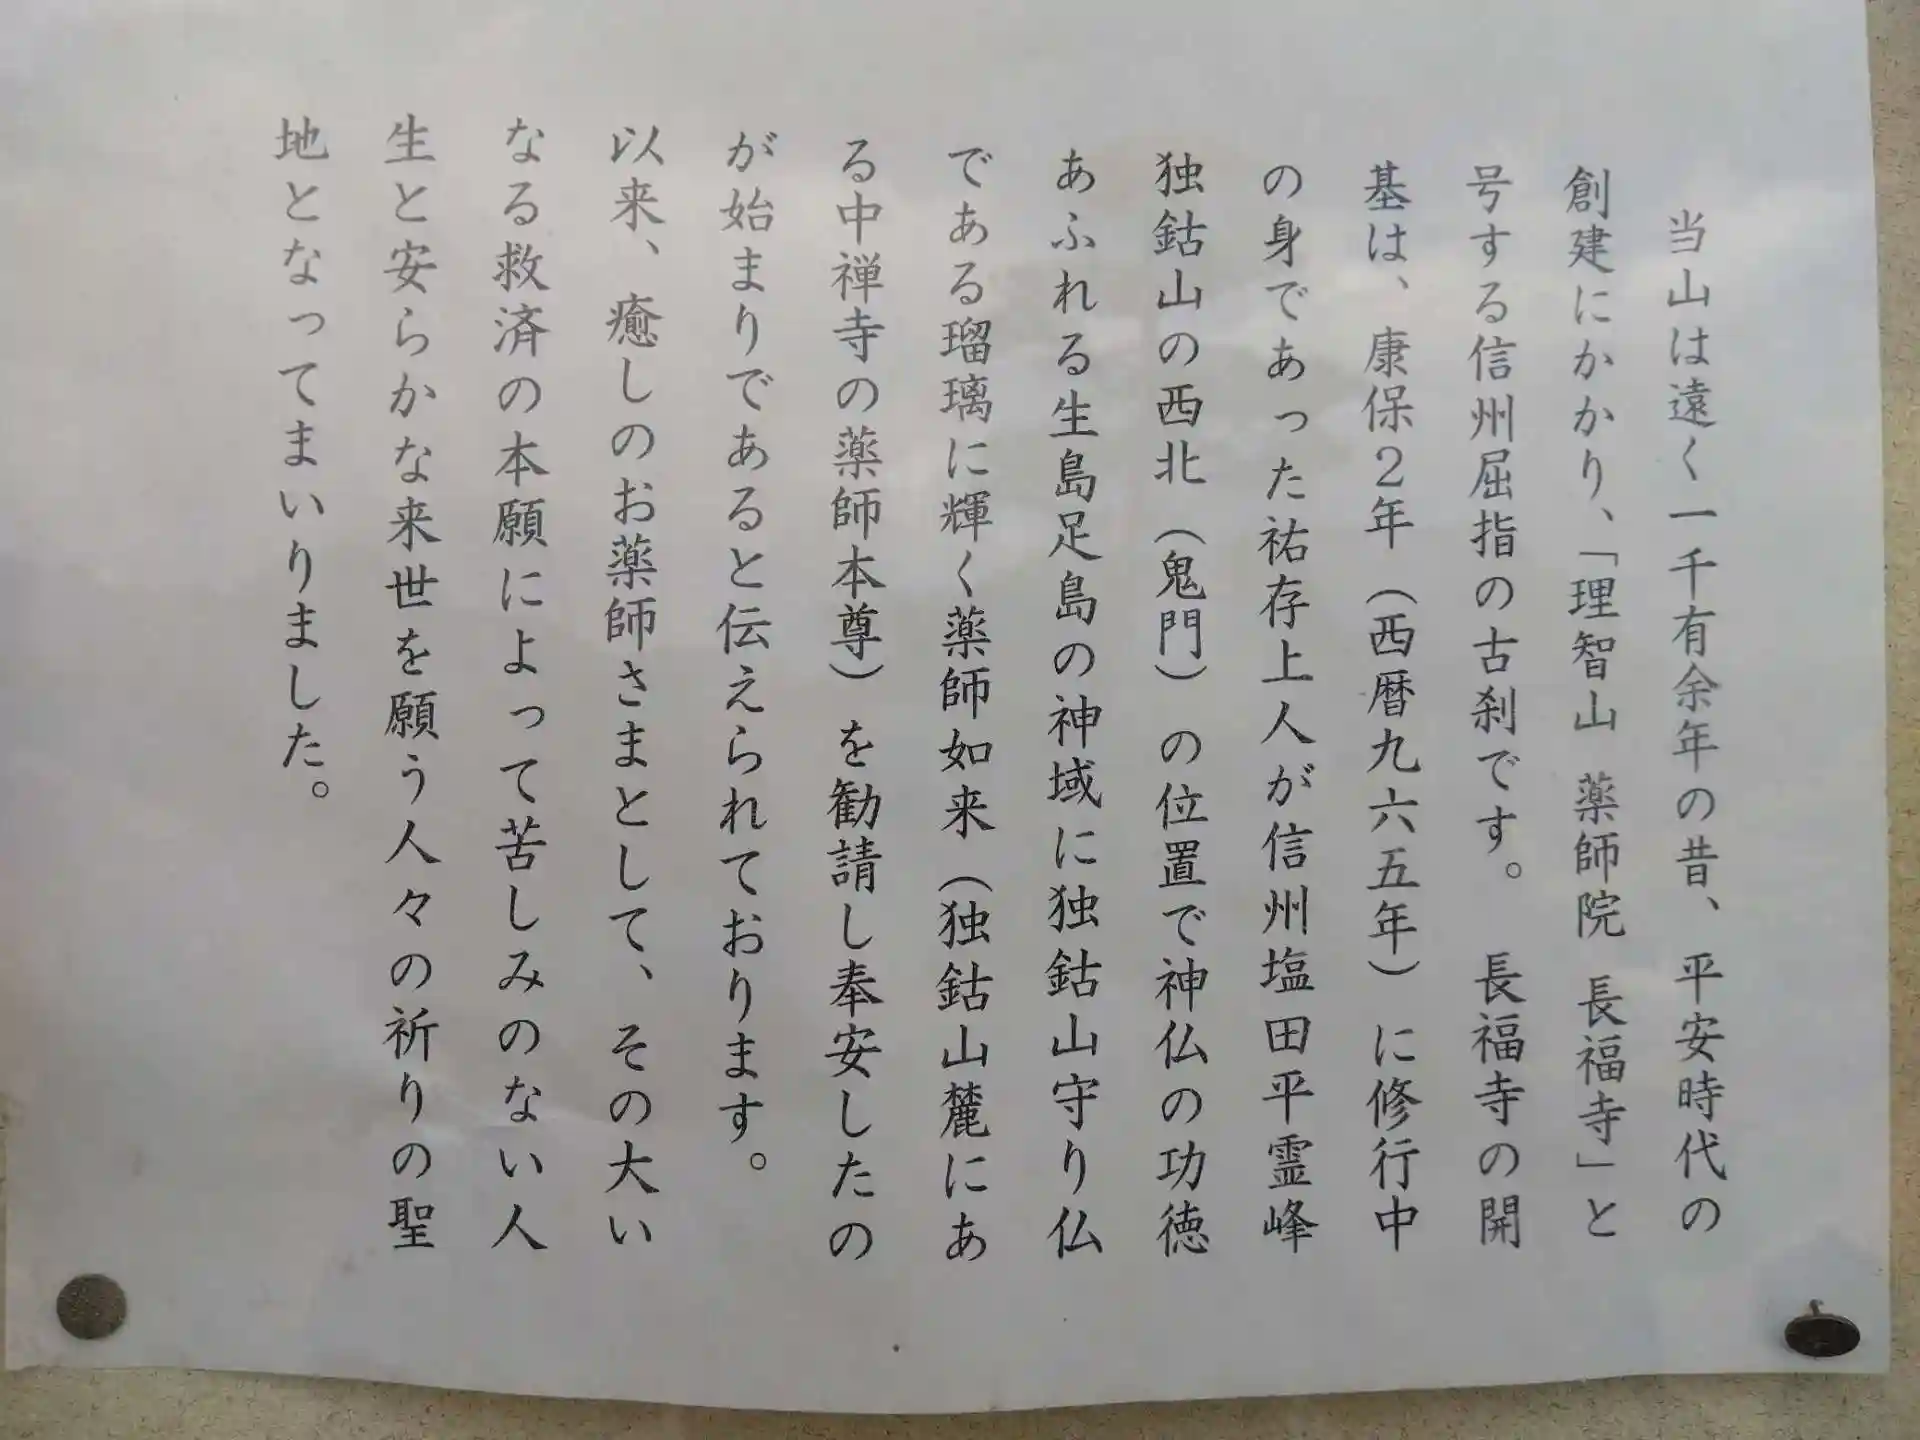 当山は遠く一千有余年の昔、平安時代の
創建にかかり、「理智山 薬師院 長福寺」と
号する信州屈指の古刹です。 長福寺の開
基は、康保２年（西暦九六五年）に修行中
の身であった祐存上人が信州塩田平霊峰
独鈷山の西北（鬼門）の位置で神仏の功徳
あふれる生島足島の神域に独鈷山守り仏
である瑠璃に輝く薬師如来（独鈷山麓にあ
る中禅寺の薬師本尊）を勧請し奉安したの
が始まりであると伝えられております。
以来、癒しのお薬師さまとして、その大い
なる救済の本願によって苦しみのない人
生と安らかな来世を願う人々の祈りの聖
地となってまいりました。